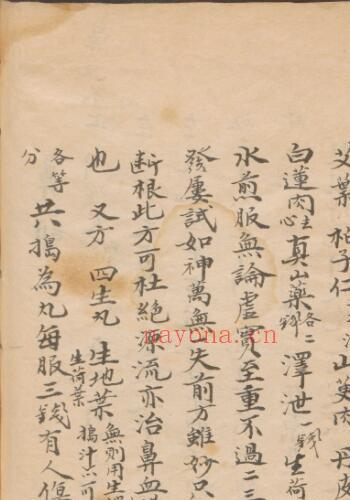 艾葉 柏子仁 山萸肉 丹皮
白蓮肉 去心 真山藥 各二錢 澤泄 一錢 生荷
水煎服無論虛實至重不過二三
發屢試如神萬無失前方雖妙只
斷根此方可杜絕源流亦治鼻血
也 又方 四生丸 生地葉 無則用生 生荷葉 搗汁亦可
各等分 共搗為丸每服三錢有人傷
nayona.cn